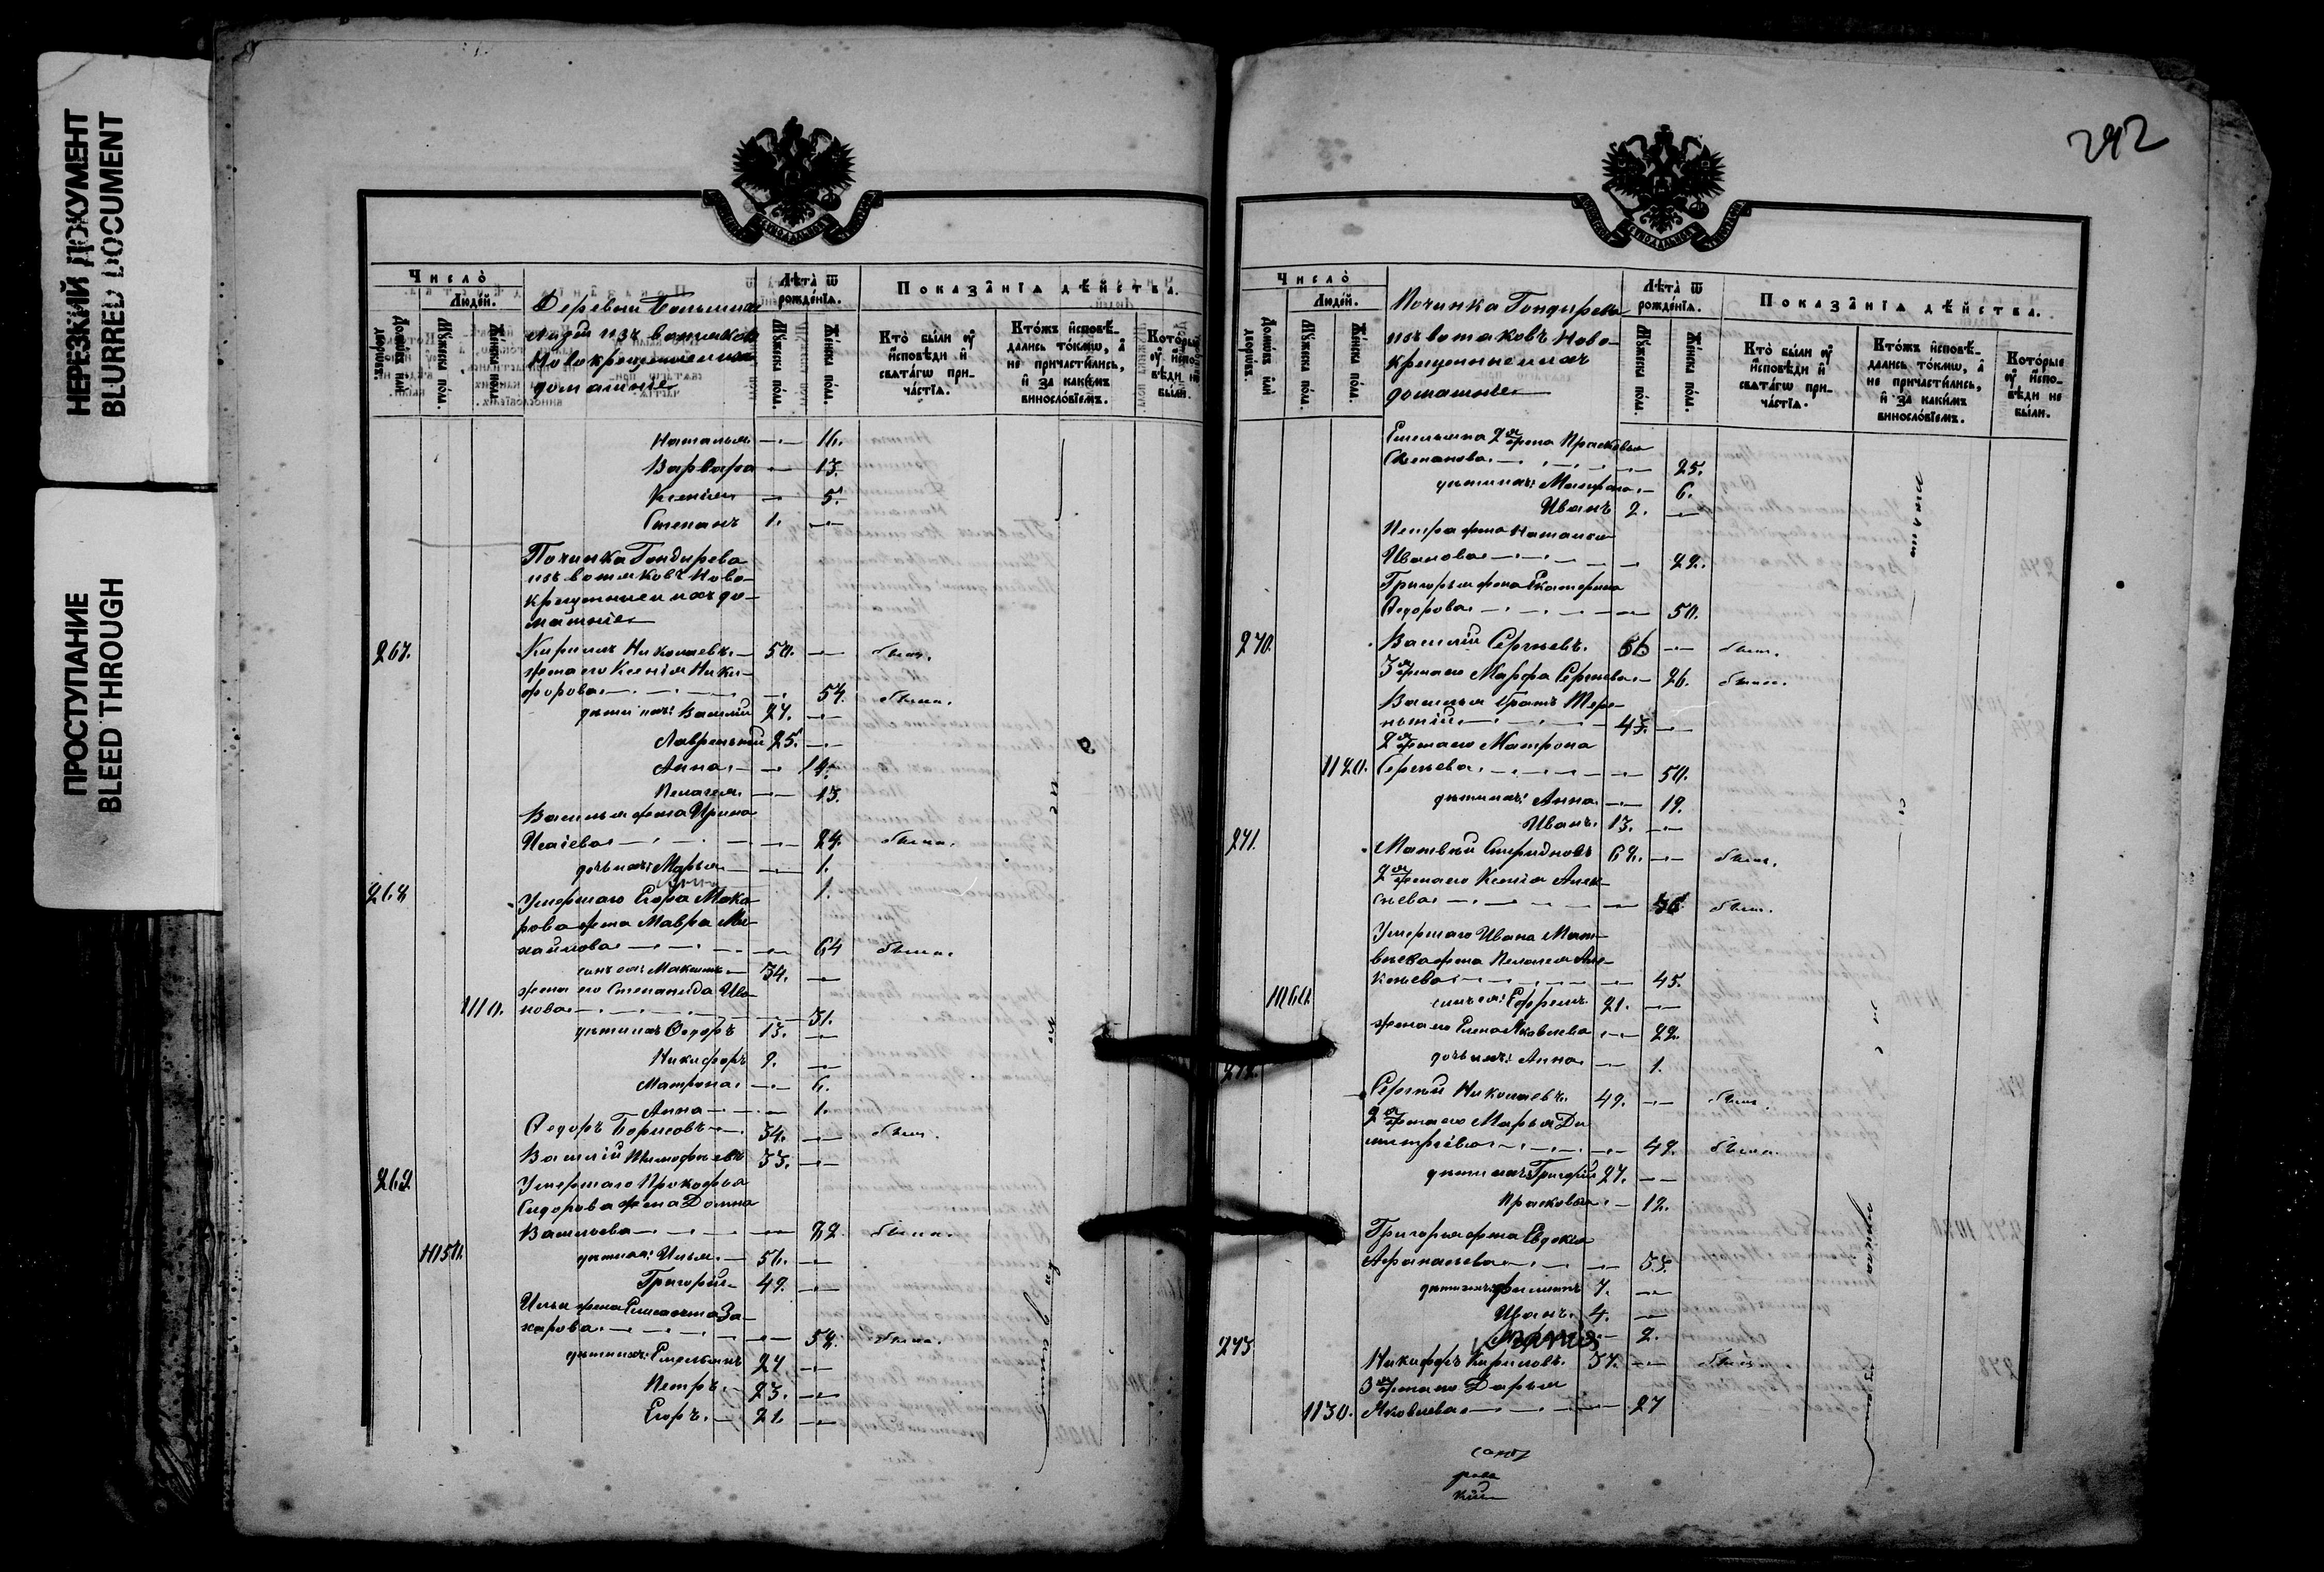 НЕРЕЗКИЙ ДОКУМЕНТ
BLURRED DOCUMENT
ПРОСТУПАНИЕ
BLEED THROUGH
Число̀
Людей.
Домовъ или дворовъ.
Мужеска пола.
Женска пола.
Деревни Большия
изъ вотяковъ
Новокрещенныхъ
домашніе
Лѣта̀ ѿ рожде́нїѧ.
Мужеска пола.
Женска пола.
Показа̂нїѧ дѣ́йства.
Кто̀ бы́ли оу҆ и҆сповѣди и҆ свѧта́гѡ при­ча́стїѧ.
Кто́жъ и҆сповѣ­дались то́кмѡ, а҆ не причасти́лись, и҆ за каки́мъ винослові́емъ.
Кото́рые оу҆ и҆спо­вѣди не бы́ли.
Наталья — 16.
Варвара — 13.
Ксенія — 5.
Степанъ 1. —
Починка Гондырева
изъ вотяковъ Ново-
крещенныхъ до-
машніе
267. Кирилъ Николаевъ — 50. — былъ.
жена его Ксенія Ники-
форова — 54. была.
дѣти ихъ: Василій 27. —
Лаврентій 25. —
Анна — 14.
Пелагея — 13.
Василья жена Ирина
Исаіева — 24. была.
дочь ихъ: Марья — 1.
1.
268. Умершаго Егора Мака-
рова жена Мавра Ми-
хайлова — 64 была.
сынъ ея: Максимъ — 34. —
жена его Степанида Ива-
1110. нова — 31.
дѣти ихъ Ѳедоръ 13. —
Никифоръ 9. —
Матрона — 6.
Анна — 1.
Ѳедоръ Борисовъ — 34. — былъ.
Василій Тимофеевъ 33. —
269. Умершаго Прокофья
Сидорова жена Домна
Васильева — 72. была.
1150. дѣти ея: Илья — 51. —
Григорій — 49. —
Ильи жена Елисавета За-
харова — 52. была.
дѣти ихъ: Емельянъ 27 —
Петръ — 23. —
Егоръ — 21. —
292
Число̀
Людей.
Домовъ или дворовъ.
Мужеска пола.
Женска пола.
Починка Гондырева
изъ вотяковъ Ново-
крещенныхъ
домашніе
Лѣта̀ ѿ рожде́нїѧ.
Мужеска пола.
Женска пола.
Показа̂нїѧ дѣ́йства.
Кто̀ бы́ли оу҆ и҆сповѣди и҆ свѧта́гѡ при­ча́стїѧ.
Кто́жъ и҆сповѣ­дались то́кмѡ, а҆ не причасти́лись, и҆ за каки́мъ винослові́емъ.
Кото́рые оу҆ и҆спо­вѣди не бы́ли.
Емельяна 2я жена Прасковья
Степанова — 25.
дѣти ихъ: — 6.
Иванъ 2. —
Петра жена Наталья
Иванова — 22.
Григорья жена Екатерина
Ѳедорова — 50.
270. Василій Сергѣевъ. 56 — былъ.
3я жена его Марфа Сергѣева — 26. была.
Василья братъ Тере-
нтій — 43. —
2я жена его Матрона
1120. Сергѣева — 50.
дѣти ихъ: Анна — 19.
Иванъ. 13. —
271. Матвѣй Спиридновъ 62. — былъ.
2я жена его Ксенія Алек-
сѣева — 56. была.
Умершаго Ивана Мат-
вѣева жена Пелагея
— 45.
1160. сынъ ея: Ефремъ 21. —
жена его Елена Яковлева — 22.
дочь ихъ: Анна — 1.
272. Сергѣй Николаевъ. 49. — былъ.
2я жена его Марья Ди-
митріева — 49. была.
дѣти ихъ Григорій 27. —
Прасковья — 12.
Григорья жена Евдокія
Афанасьева — 33.
дѣти ихъ: Филипъ 7. —
Иванъ. 4. —
— 2.
273 Никифоръ Кириловъ. 37. — былъ.
3я жена его Дарья
1130. Яковлева — 27